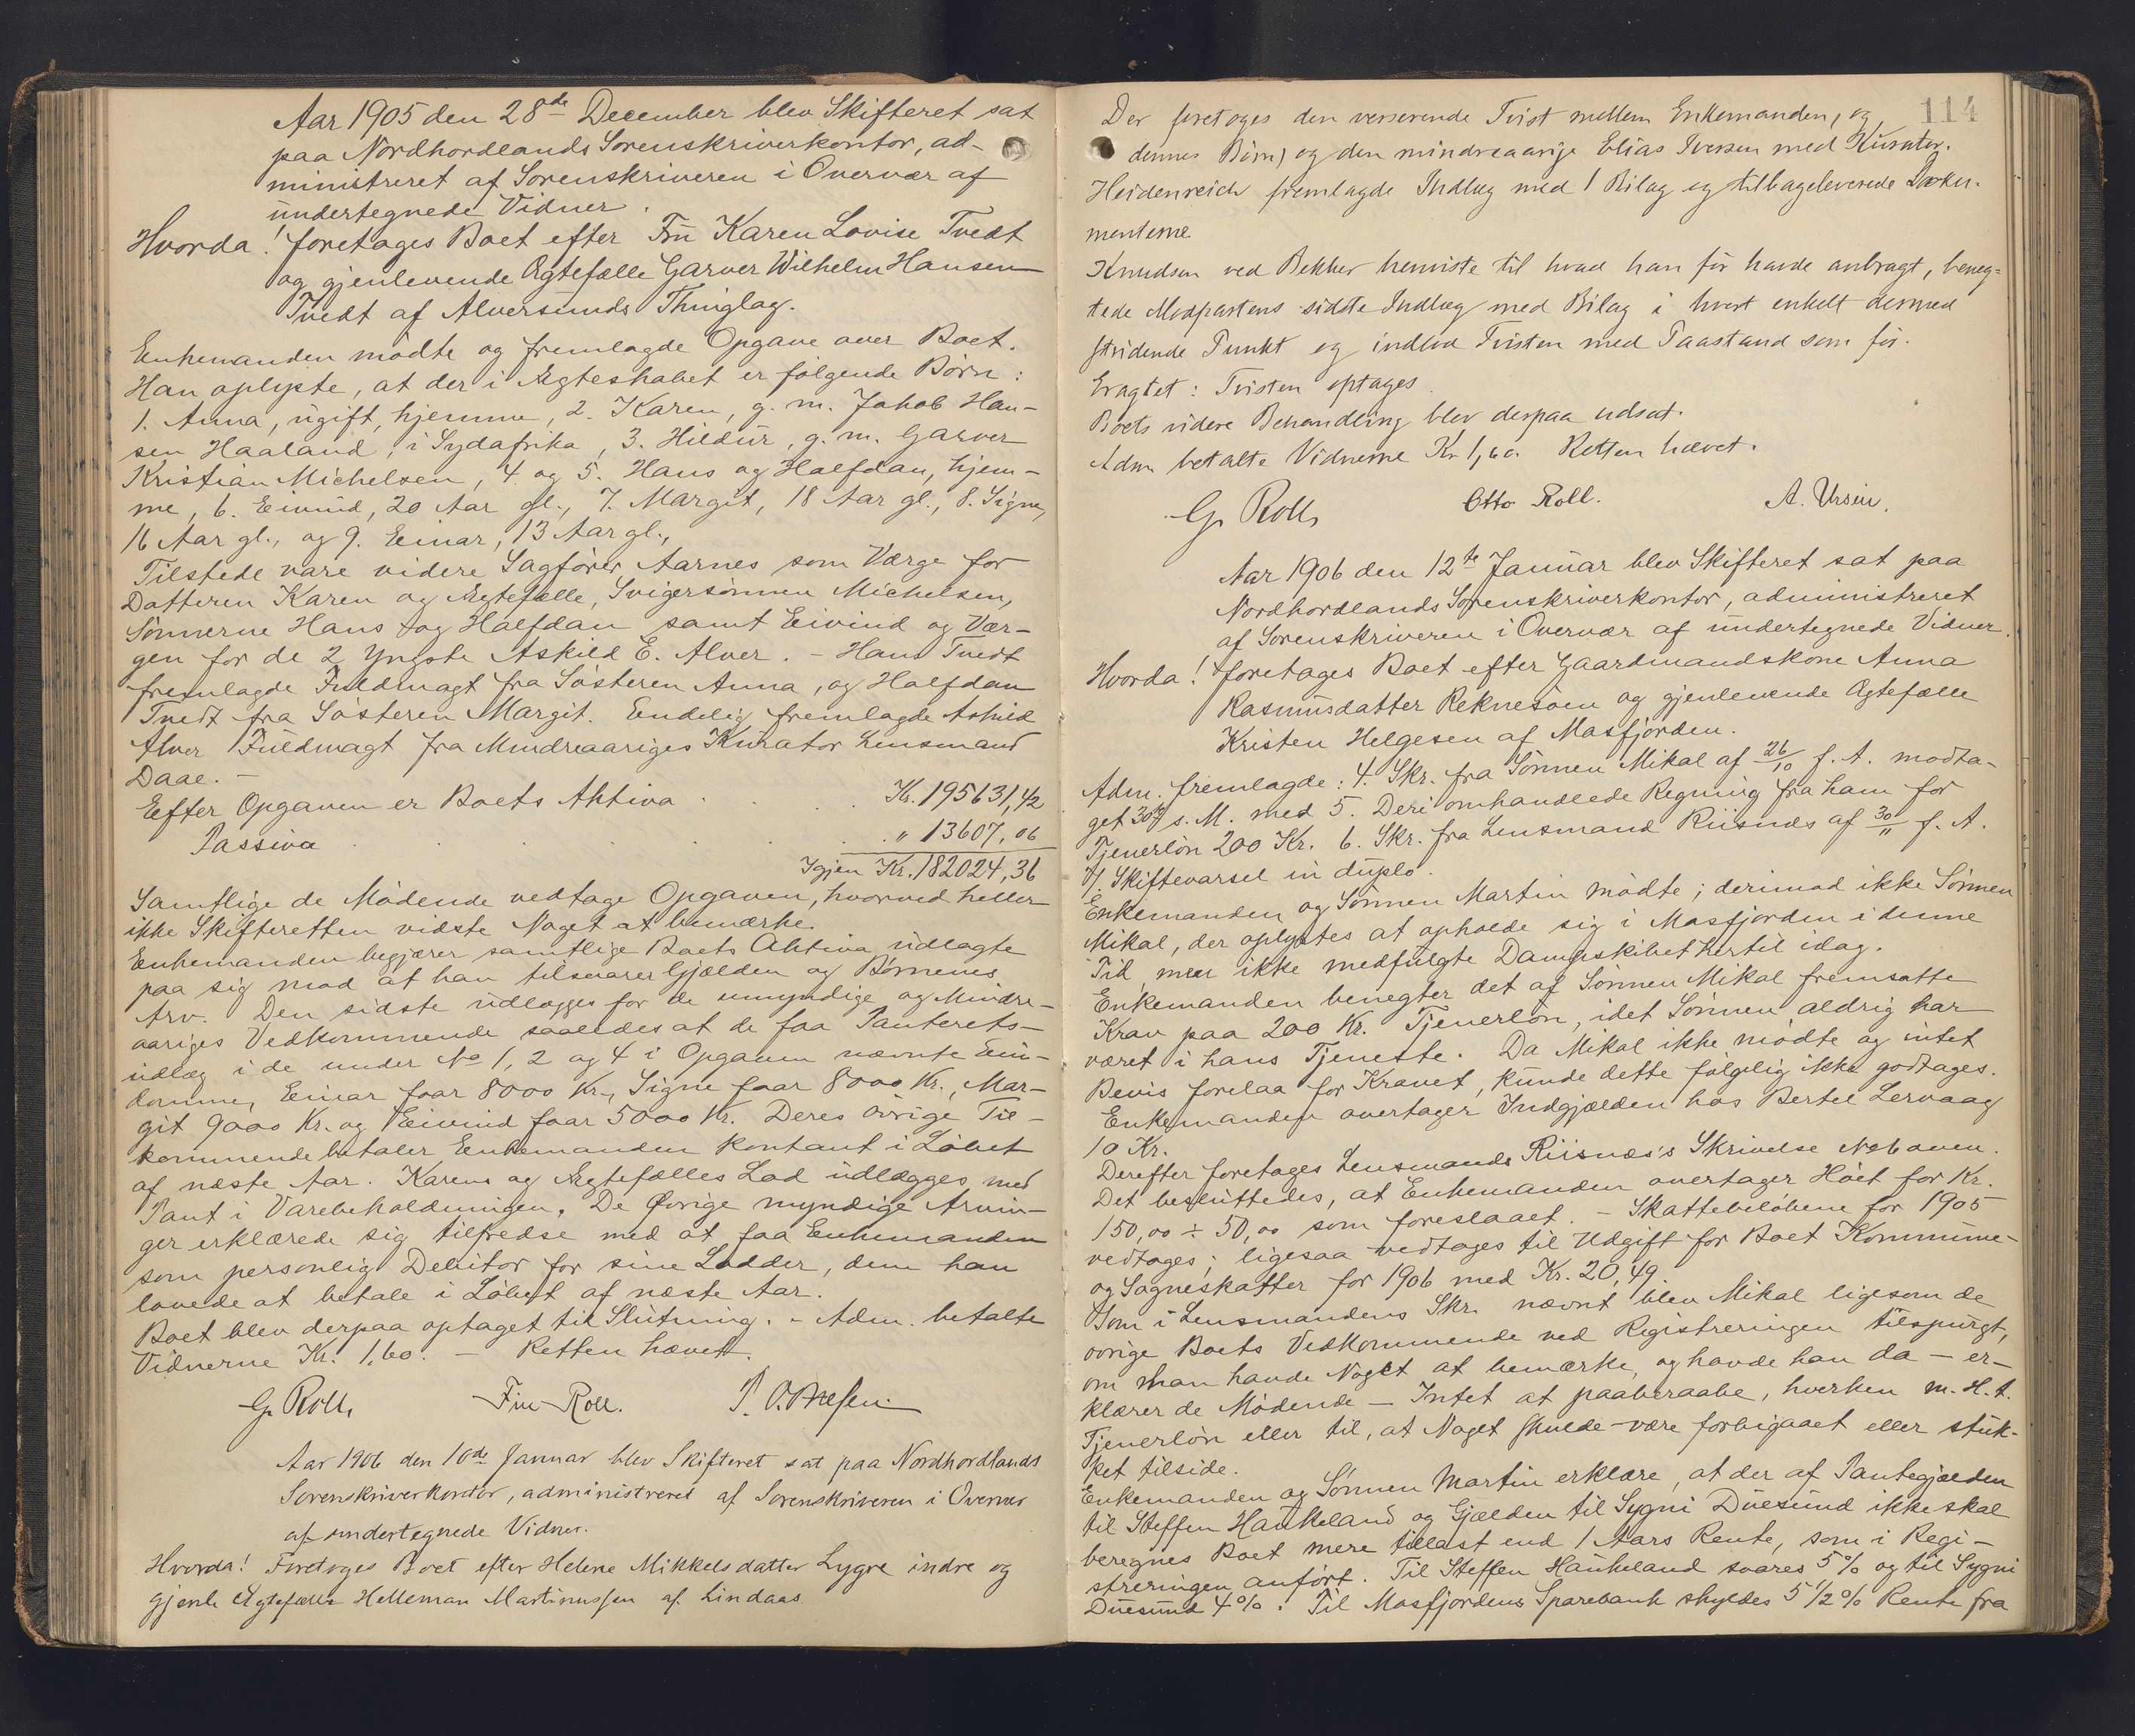 Aar 1905 den 28de December blev Skifteret sat
paa Nordhordlands Sorenskriverkontor, ad-
ministreret af Sorenskriveren i Overvær af
undertegnede Vidner.
Hvorda! foretages Boet efter Fru Karen Lovise Tvedt
og gjenlevende Ægtefælle Garver Wilhelm Hansen
Tvedt af Alversunds Thinglag.
Enkemanden mødte og fremlagde Opgave over Boet.
Han oplyste, at der i Ægteskabet er følgende Børn:
1. Anna, ugift, hjemme, 2. Karen, g. m. Jakob Han-
sen Haaland, i Sydafrika, 3. Hildur, g. m. Garver
Kristian Michelsen, 4. og 5. Hans og Halfdan, hjem-
me, 6. Eivind, 20 Aar gl., 7. Margit, 18 Aar gl., 8. Signe,
16 Aar gl., og 9. Einar, 13 Aar gl.,
Tilstede vare videre Sagfører Aarnes som Værge for
Datteren Karen og Ægtefælle, Svigersønnen Michelsen,
Sønnerne Hans og Halfdan samt Eivind og Vær-
gen for de 2 Yngste Askild E. Alver. - Hans Tvedt
fremlagde Fuldmagt fra Søsteren Anna, og Halfdan
Tvedt fra Søsteren Margit. Endelig fremlagde Askild
Alver Fuldmagt fra Mindreaariges Kurator Lensmand
Daae. -
Efter Opgaven er Boets Aktiva . . . Kr. 195631,42
Passiva . . . . . " 13607,06
Igjen Kr. 182024,36
Samtlige de Mødende vedtage Opgaven, hvorved heller
ikke Skifteretten vidste Noget at bemærke.
Enkemanden begjærer samtlige Boets Aktiva udlagte
paa sig mod at han tilsvarer Gjælden og Børnenes
Arv. Den sidste udlægges for de umyndige og Mindre-
aariges Vedkommende saaledes at de faa Panterets-
udlæg i de under No 1, 2 og 4 i Opgaven nævnte Ein-
domme, Einar faar 8000 Kr., Signe faar 8000 Kr., Mar-
git 9000 Kr. og Eivind faar 5000 Kr. Deres øvrige Til-
kommende betaler Enkemanden kontant i Løbet
af næste Aar. Karens og Ægtefælles Lod udlægges med
Pant i Varebeholdningen. De Øvrige myndige Arvin-
ger erklærede sig tilfredse med at faa Enkemanden
som personlig Debitor for sine Lodder, dem han
lovede at betale i Løbet af næste Aar.
Boet blev derpaa optaget til Slutning. - Adm. betalte
Vidnerne Kr. 1,60. - Retten hævet.
G. Roll, Fin Roll.
Aar 1906 den 10de Januar blev Skifteret sat paa Nordhordlands
Sorenskriverkontor, administreret af Sorenskriveren i Overvær
af undertegnede Vidner.
Hvorda! Foretoges Boet efter Helene Mikkelsdatter Lygre indre og
gjenl. Ægtefælle Helleman Martinussen af Lindaas
114
Der foretoges den verserende Tvist mellem Enkemanden, og
dennes Børn) og den mindreaarige Elias Iversen med Kurator.
Heidenreich fremlagde Indlæg med 1 Bilag og tilbageleverede Doku-
menterne
Knudsen ved Bekker henviste til hvad han før havde anbragt, beneg-
tede Modpartens sidste Indlæg med Bilag i hvert enkelt dermed
stridende Punkt og indlod Tvisten med Paastand som før.
Eragtet: Tvisten optages.
Boets videre Behandling blev derpaa udsat.
Adm betalte Vidnerne Kr 1,60. Retten hævet.
G. Roll, Otto Roll. A. Ursin.
Aar 1906 den 12te Januar blev Skifteret sat paa
Nordhordlands Sorenskriverkontor, administreret
af Sorenskriveren i Overvær af undertegnede Vidner.
Hvorda! foretages Boet efter Gaardmandskone Anna
Rasmusdatter Reknesøen og gjenlevende Ægtefælle
Kristen Helgesen af Masfjorden.
Adm. fremlagde: 4. Skr. fra Sønnen Mikal af 26/10 f. A. modta-
get 30te s. M. med 5. Deri omhandlede Regning fra ham for
Tjenerløn 200 Kr. 6. Skr. fra Lensmand Riisnæs af 30/11 f. A.
7. Skiftevarsel in duplo.
Enkemanden og Sønnen Martin mødte; derimod ikke Sønnen
Mikal, der oplystes at opholde sig i Masfjorden i denne
Tid, men ikke medfulgte Dampskibet hertil idag.
Enkemanden benegter det af Sønnen Mikal fremsatte
Krav paa 200 Kr. Tjenerløn, idet Sønnen aldrig har
været i hans Tjeneste. Da Mikal ikke mødte og intet
Bevis forelaa for Kravet, kunde dette følgelig ikke godtages.
Enkemanden overtager Indgjælden hos Bertel Lervaag
10 Kr.
Derefter foretoges Lensmands Riisnæs's Skrivelse No 6 oven.
Det besluttedes, at Enkemanden overtager Høet for Kr.
150,00 ÷ 50,00 som foreslaaet. - Skattebeløbene for 1905
vedtoges; ligesaa vedtoges til Udgift for Boet Kommune-
og Sogneskatter for 1906 med Kr. 20,49.
Som i Lensmandens Skr. nævnt blev Mikal ligesom de
øvrige Boets Vedkommende ved Registreringen tilspurgt,
om man havde Noget at bemærke, og havde han da - er-
klærer de Mødende - Intet at paaberaabe, hverken m. H. t.
Tjenerløn eller til, at Noget skulde være forbigaaet eller stuk-
ket tilside.
Enkemanden og Sønnen Martin erklære, at der af Pantegjælden
til Steffen Haukeland og Gjælden til Sygni Duesund ikke skal
beregnes Boet mere tillast end 1 Aars Rente, som i Regi-
streringen anført. Til Steffen Haukeland svares 5% og til Sygni
Duesund 4%. Til Masfjordens Sparebank skyldes 5 1/2 % Rente fra